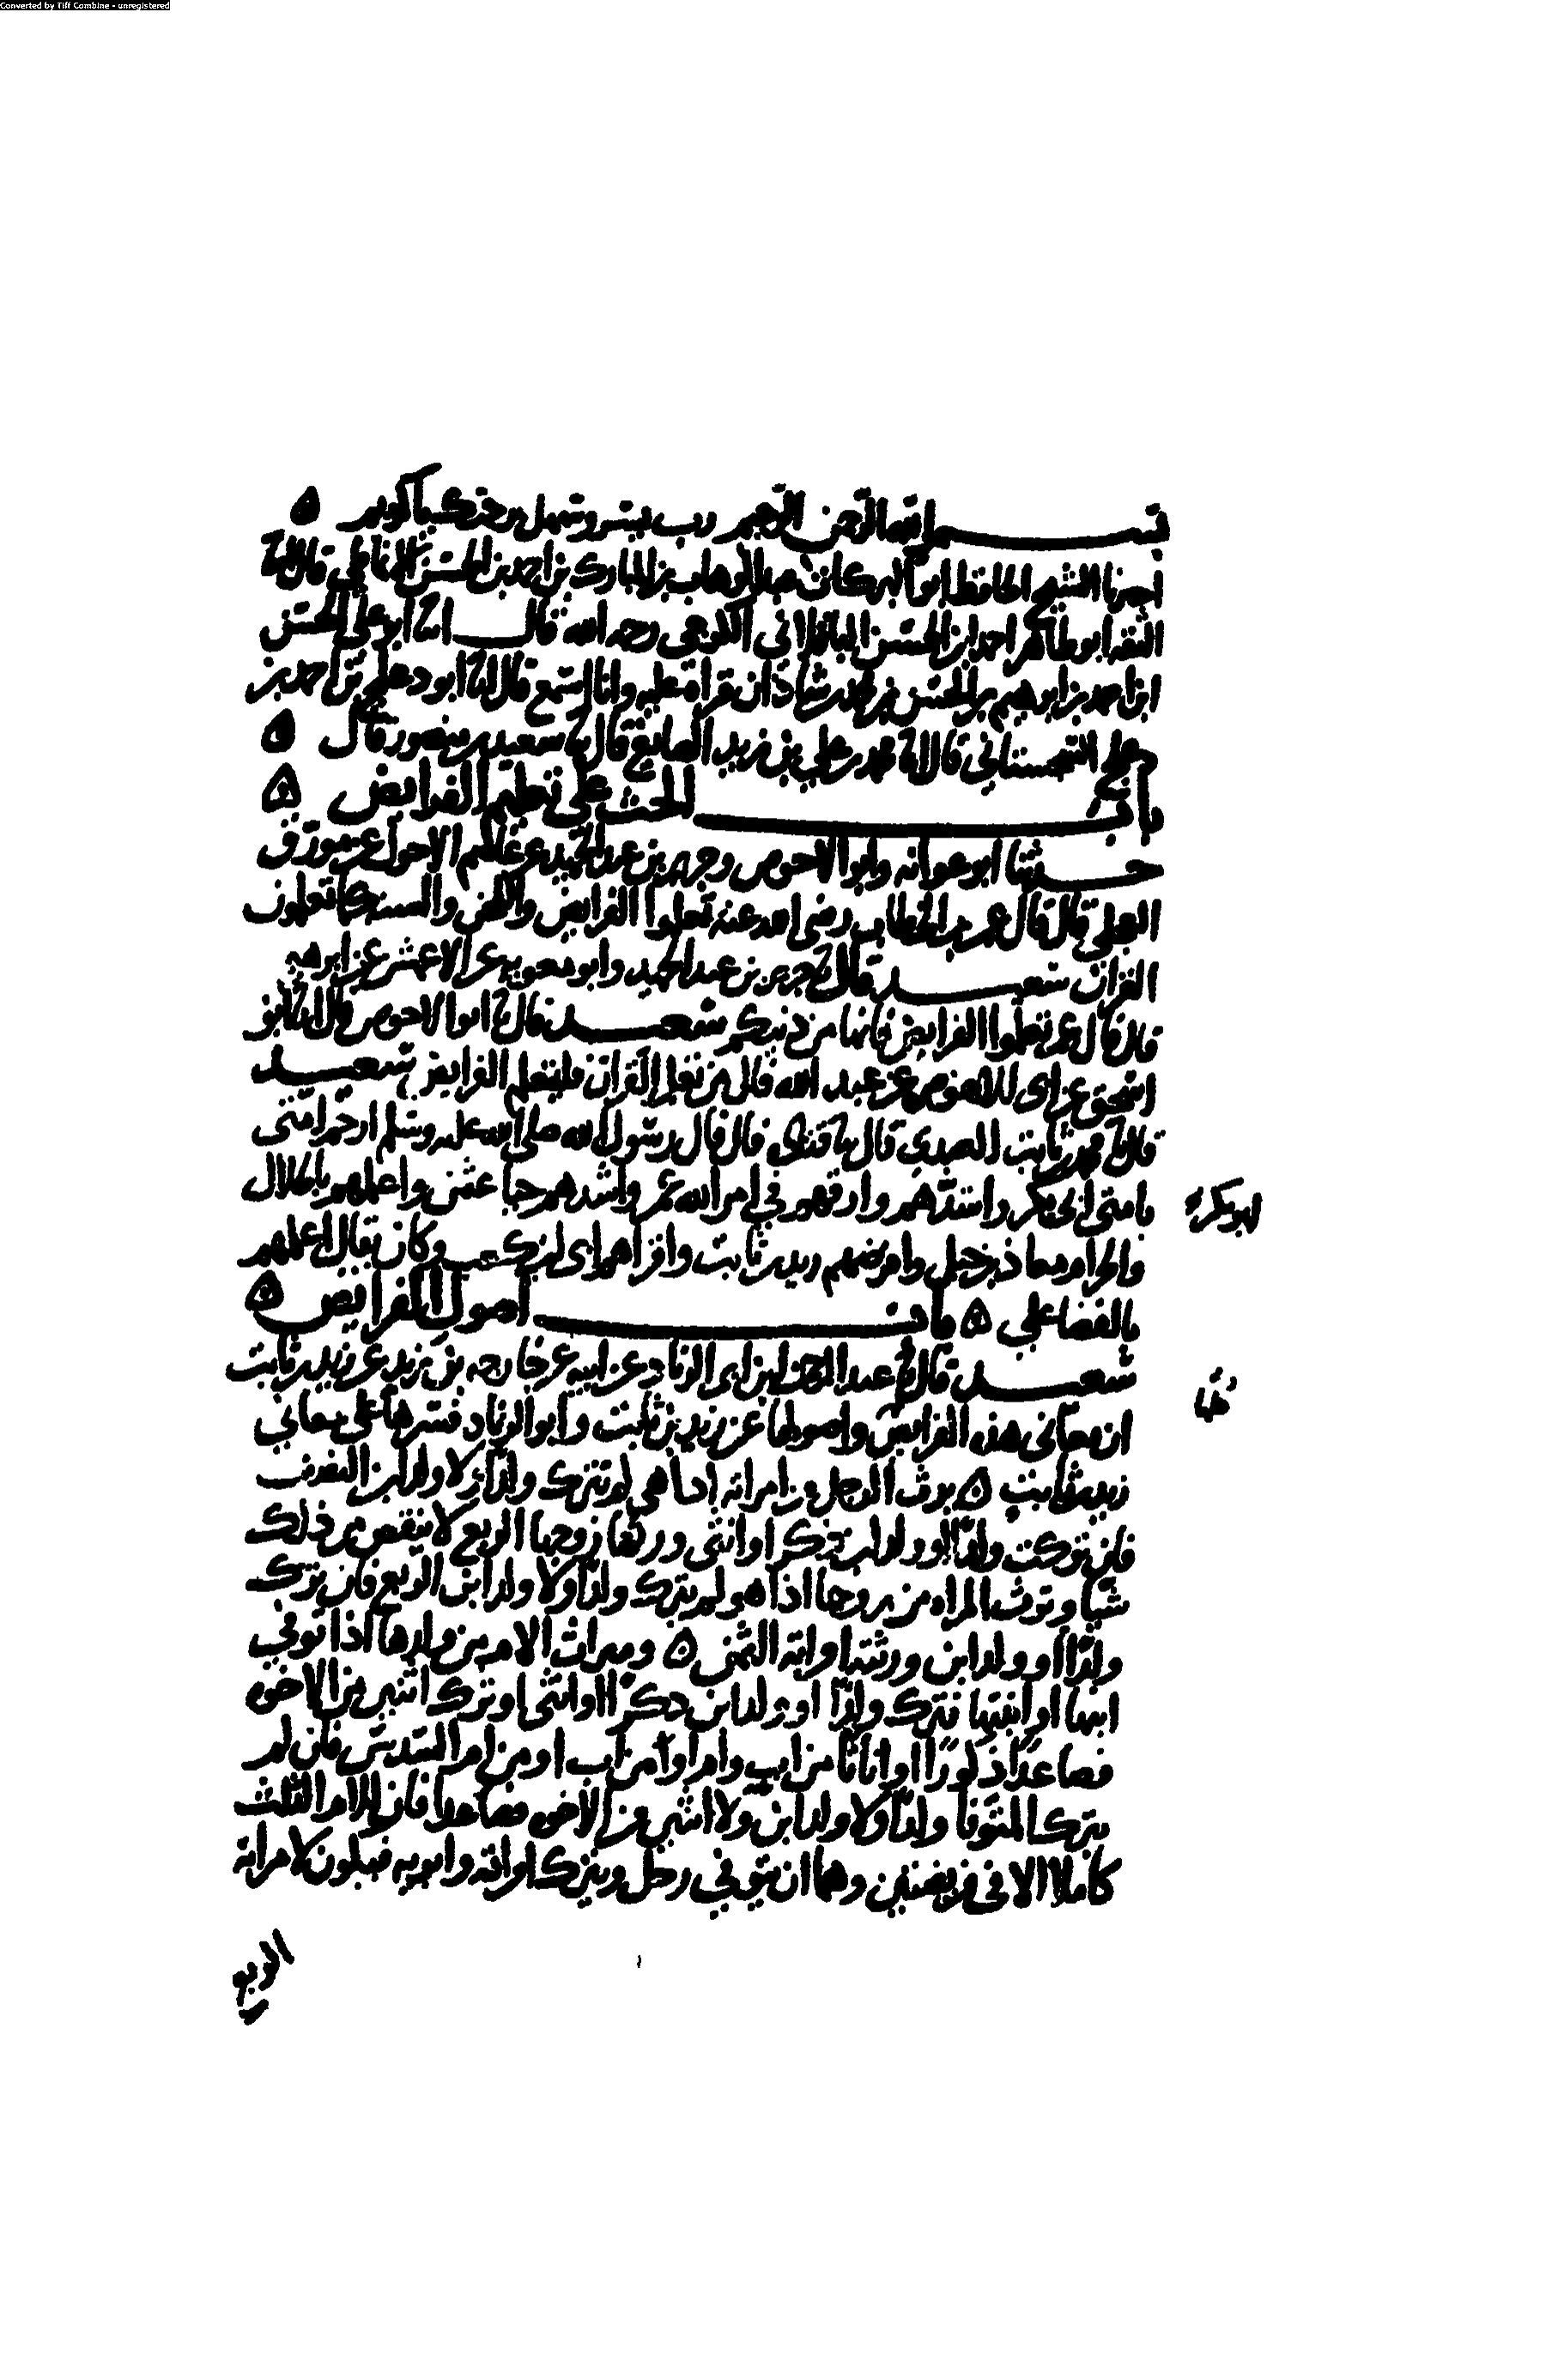 Converted by Tiff Combine - unregistered
بسم الله الرحمن الرحيم رب يسر وسهل برحمتك يا كريم
اخبرنا الشيخ الحافظ ابو البركات عبد الوهاب بن المبارك بن احمد بن الحسن الانماطي قال انا
الثقة ابو طاهر احمد بن الحسن الباقلاني الكرجي رحمه الله قال انا ابو علي الحسن
ابن احمد بن ابرهيم بن الحسن بن محمد بن شاذان قراة عليه وانا اسمع قال انا ابو محمد دعلج بن احمد بن
دعلج السجستاني قال انا محمد بن علي بن زيد الصايغ قال نا سعيد بن منصور قال
باب الحث على تعليم الفرايض
حدثنا ابو عوانه وابو الاحوص وجرير بن عبد الحميد عن عاصم الاحول عن مورق
العجلي قال قال عمر بن الخطاب رضي الله عنه تعلموا الفرايض واللحن والسنه كما تعلمون
القران سعيد قال نا جرير بن عبد الحميد وابو معويه عن الاعمش عن ابرهيم
قال قال عمر تعلموا الفرايض فانها من دينكم سعيد قال نا ابو الاحوص قال انا ابو
اسحق عن ابي الاحوص عن عبد الله قال من تعلم القران فليتعلم الفرايض سعيد
قال نا محمد بن ثابت العبدي قال نا قتادة قال قال رسول الله صلى الله عليه وسلم ارحم امتي
بامتي ابي بكر واشدهم وارقهم في امر الله عمر واشدهم حيا عثمن واعلمهم بالحلال
والحرام معاذ بن جبل وافرضهم زيد بن ثابت واقراهم ابي بن كعب وكان يقال اعلمهم
بالقضا علي باب اصول الفرايض
سعيد قال نا عبد الرحمن بن ابي الزناد عن ابيه عن خارجه بن زيد عن زيد بن ثابت
ان معاني هذه الفرايض واصولها عن زيد بن ثابت وابو الزناد فسرها على معاني
زيد بن ثابت يرث الرجل من امراته اذا هي لم تترك ولدا ولا ولد ابن النصف
فان تركت ولدا او ولد ابن ذكر او انثى ورثها زوجها الربع لا ينقص من ذلك
شيا وترث المراه من زوجها اذا هو لم يترك ولدا ولا ولد ابن الربع فان ترك
ولدا او ولد ابن ورثته امراته الثمن وميراث الام من ولدها اذا توفي
ابنها او ابنتها فترك ولدا او ولد ابن ذكرا او انثى او ترك اثنين من الاخوة
فصاعدا ذكورا او اناثا من اب وام او من اب او من ام السدس فان لم
يترك المتوفا ولدا ولا ولد ابن ولا اثنين من الاخوة فصاعدا فان للام الثلث
كاملا الا في فريضتين وهما ان يتوفي رجل ويترك امراته وابويه فيكون لامراته
ابو بكر
الربع